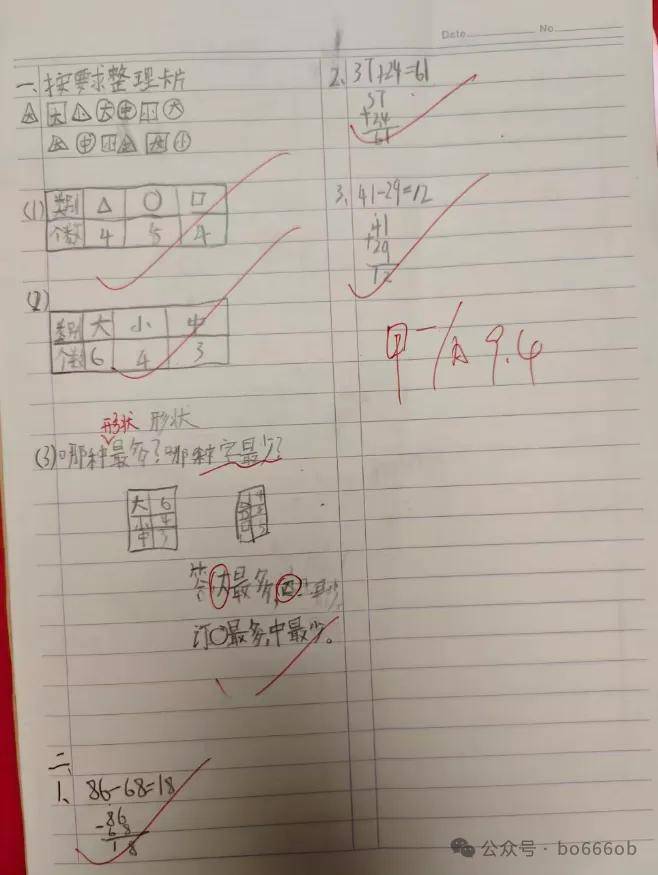 Date No.
一、按要求整理卡片
大 小 大 中 小 大
中
小
(1) 类别 △ ○ □
个数 4 5 4
(2)
类别 大 小 中
个数 6 4 3
形状 形状
(3) 哪种最多?哪种字最少?
大 6
小 4
中 3
答:大最多,
订○最多,中最少。
二、
1、86-68=18
86
-68
18
2、37+24=61
37
+24
61
3、41-29=12
41
+29
12
甲一/A 9.4
公众号·bo666ob